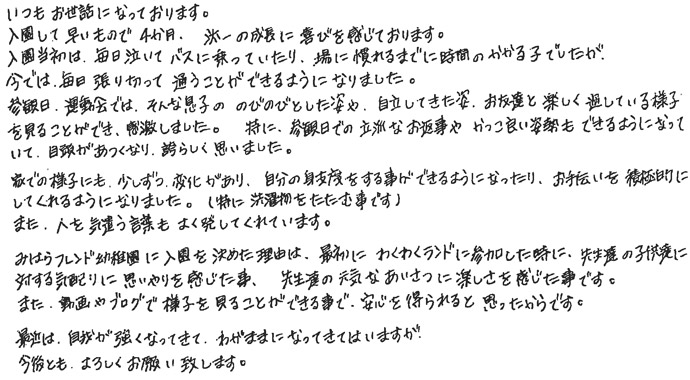 いつもお世話になっております。
入園して早いもので4か月、汰一の成長に喜びを感じております。
入園当初は、毎日泣いてバスに乗っていたり、場に慣れるまでに時間のかかる子でしたが
今では、毎日張り切って通うことができるようになりました。
参観日、運動会では、そんな息子ののびのびとした姿や、自立してきた姿、お友達と楽しく過している様子
を見ることができ、感激しました。特に、参観日での立派なお返事やかっこ良い姿勢もできるようになって
いて、目頭があつくなり、誇らしく思いました。
家での様子にも、少しずつ変化があり、自分の身支度をする事ができるようになったり、お手伝いを積極的に
してくれるようになりました。(特に洗濯物をたたむ事です)
また、人を気遣う言葉もよく発してくれています。
みはらフレンド幼稚園に入園を決めた理由は、最初にわくわくランドに参加した時に、先生達の子供達に
対する気配りに思いやりを感じた事、先生達の元気なあいさつに楽しさを感じた事です。
また、動画やブログで様子を見ることができる事で、安心を得られると思ったからです。
最近は、自我が強くなってきて、わがままになってきてはいますが
今後とも、よろしくお願い致します。